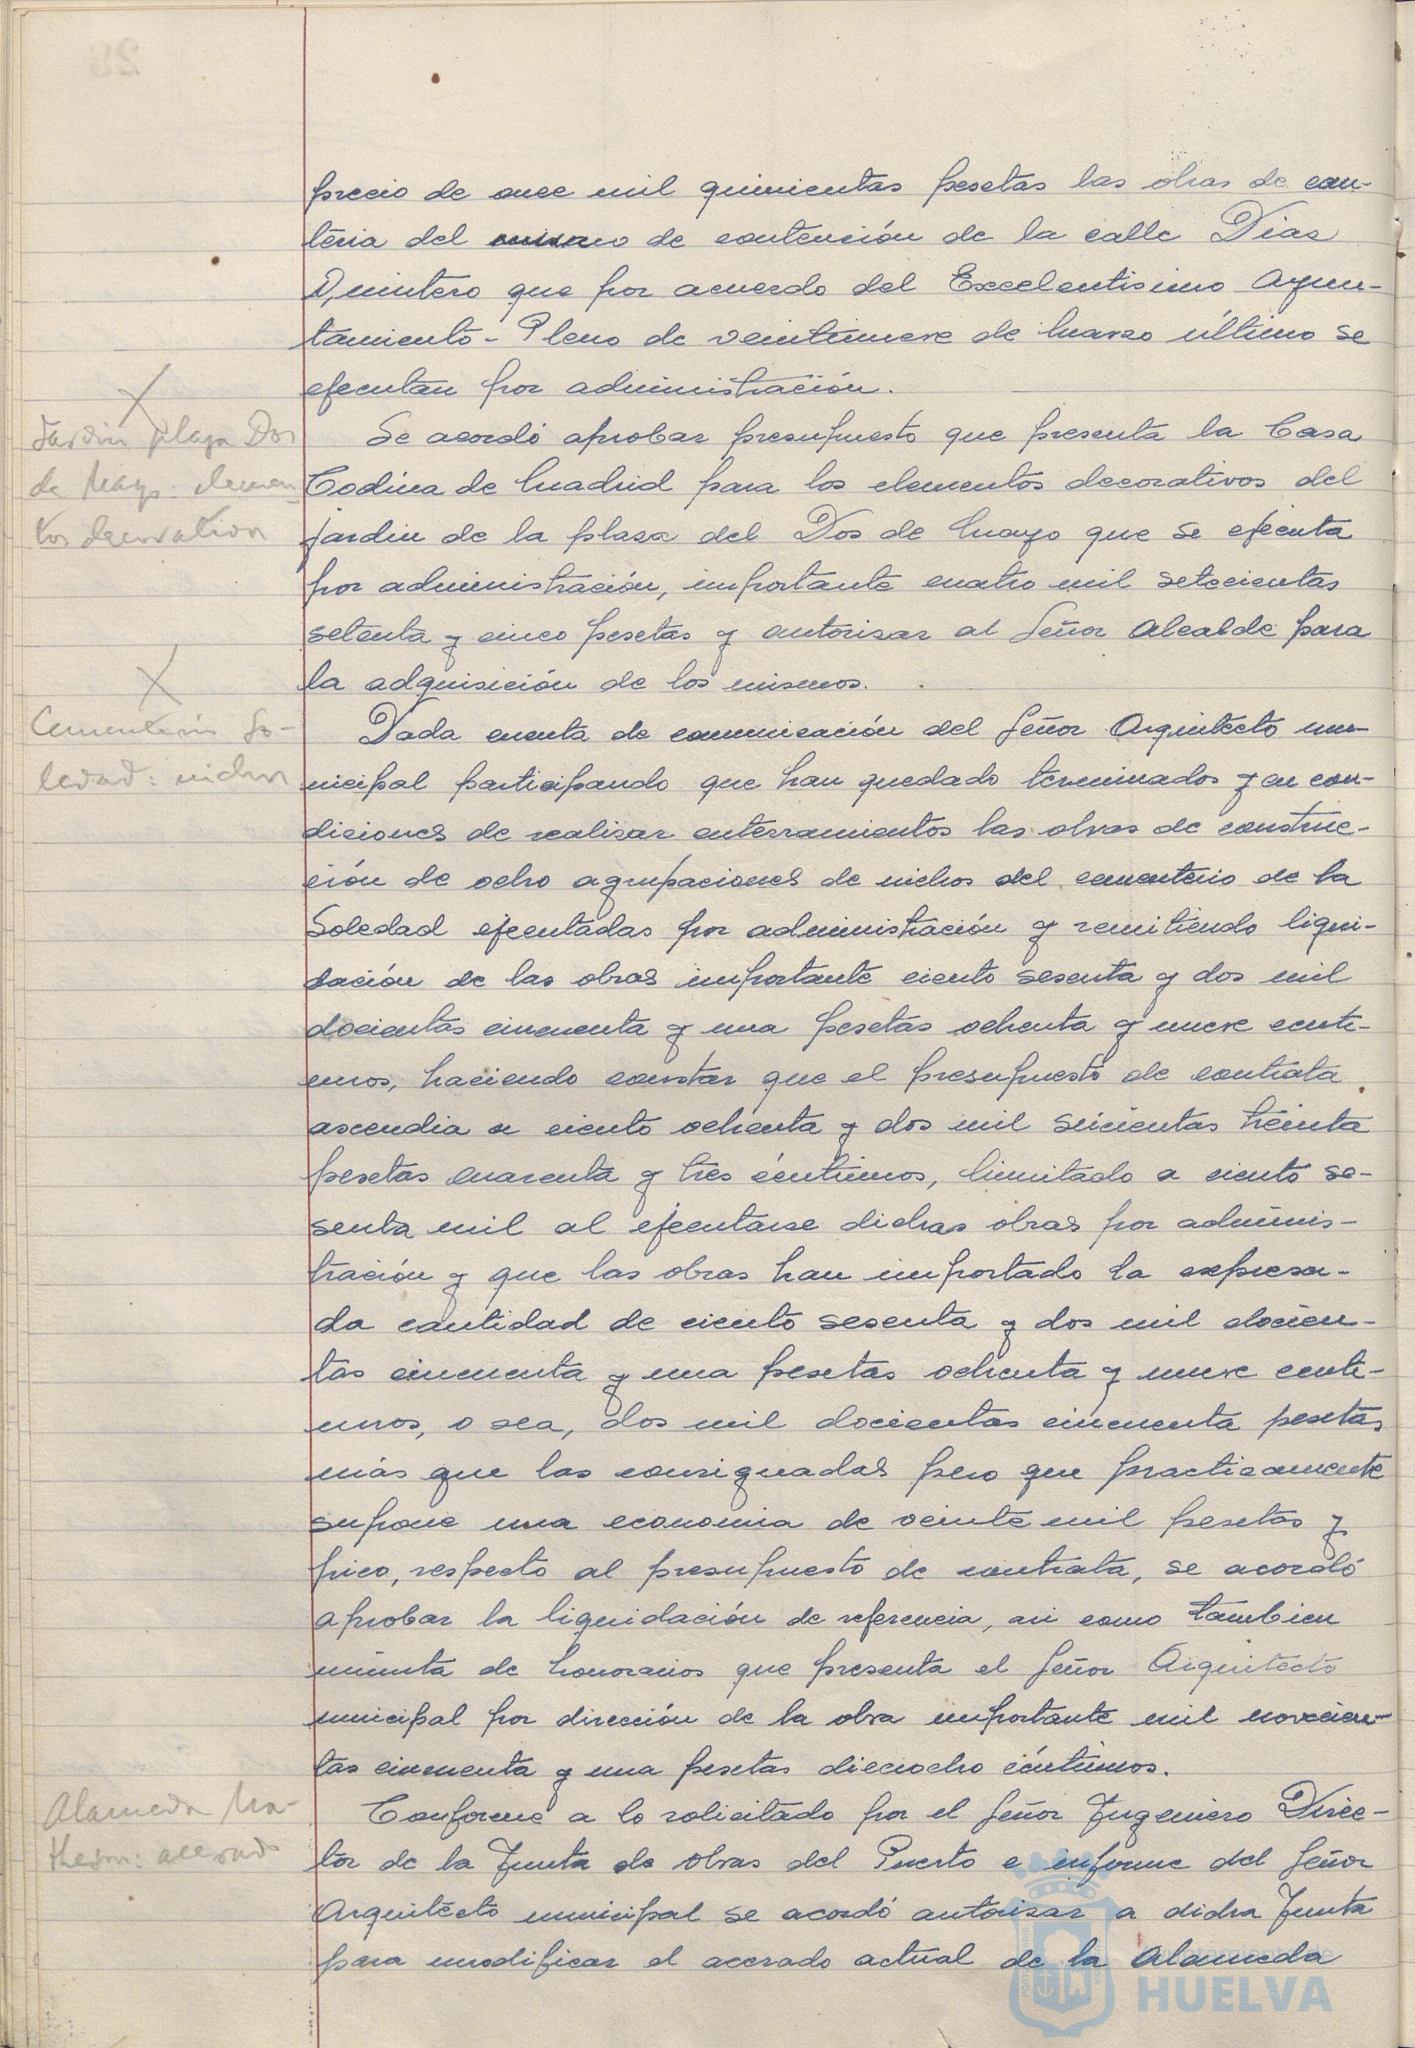 precio de once mil quinientas pesetas las obras de can-
teria del muro de contención de la calle Díaz
Quintero que por acuerdo del Excelentisimo Ayun-
tamiento-Pleno de veintinueve de Marzo último se
ejecutan por administración.
Jardin plaza Dos
de Mayo: elemen-
tos decorativos
Se acordó aprobar presupuesto que presenta la Casa
Codina de Madrid para los elementos decorativos del
jardin de la plaza del Dos de Mayo que se ejecuta
por administración, importante cuatro mil setecientas
setenta y cinco pesetas y autorizar al Señor Alcalde para
la adquisición de los mismos.
Cementerio So-
ledad: nichos
Dada cuenta de comunicación del Señor Arquitecto mu-
nicipal participando que han quedado terminados y en con-
diciones de realizar enterramientos las obras de construc-
ción de ocho agrupaciones de nichos del cementerio de la
Soledad ejecutadas por administración y remitiendo liqui-
dación de las obras importante ciento sesenta y dos mil
docientas cincuenta y una pesetas ochenta y nueve centi-
mos, haciendo constar que el presupuesto de contrata
ascendia a ciento ochenta y dos mil seicientas treinta
pesetas cuarenta y tres céntimos, limitado a ciento se-
senta mil al ejecutarse dichas obras por adminis-
tración y que las obras han importado la expresa-
da cantidad de ciento sesenta y dos mil docien-
tas cincuenta y una pesetas ochenta y nueve centi-
mos, o sea, dos mil docientas cincuenta pesetas
más que las consignadas pero que practicamente
supone una economia de veinte mil pesetas y
pico, respecto al presupuesto de contrata, se acordó
aprobar la liquidación de referencia, asi como tambien
minuta de honorarios que presenta el Señor Arquitecto
municipal por dirección de la obra importante mil novecien-
tas cincuenta y una pesetas dieciocho céntimos.
Alameda Ma-
theson: acerado
Conforme a lo solicitado por el Señor Ingeniero Direc-
tor de la Junta de Obras del Puerto e informe del Señor
Arquitecto municipal se acordó autorizar a dicha Junta
para modificar el acerado actual de la Alameda
HUELVA